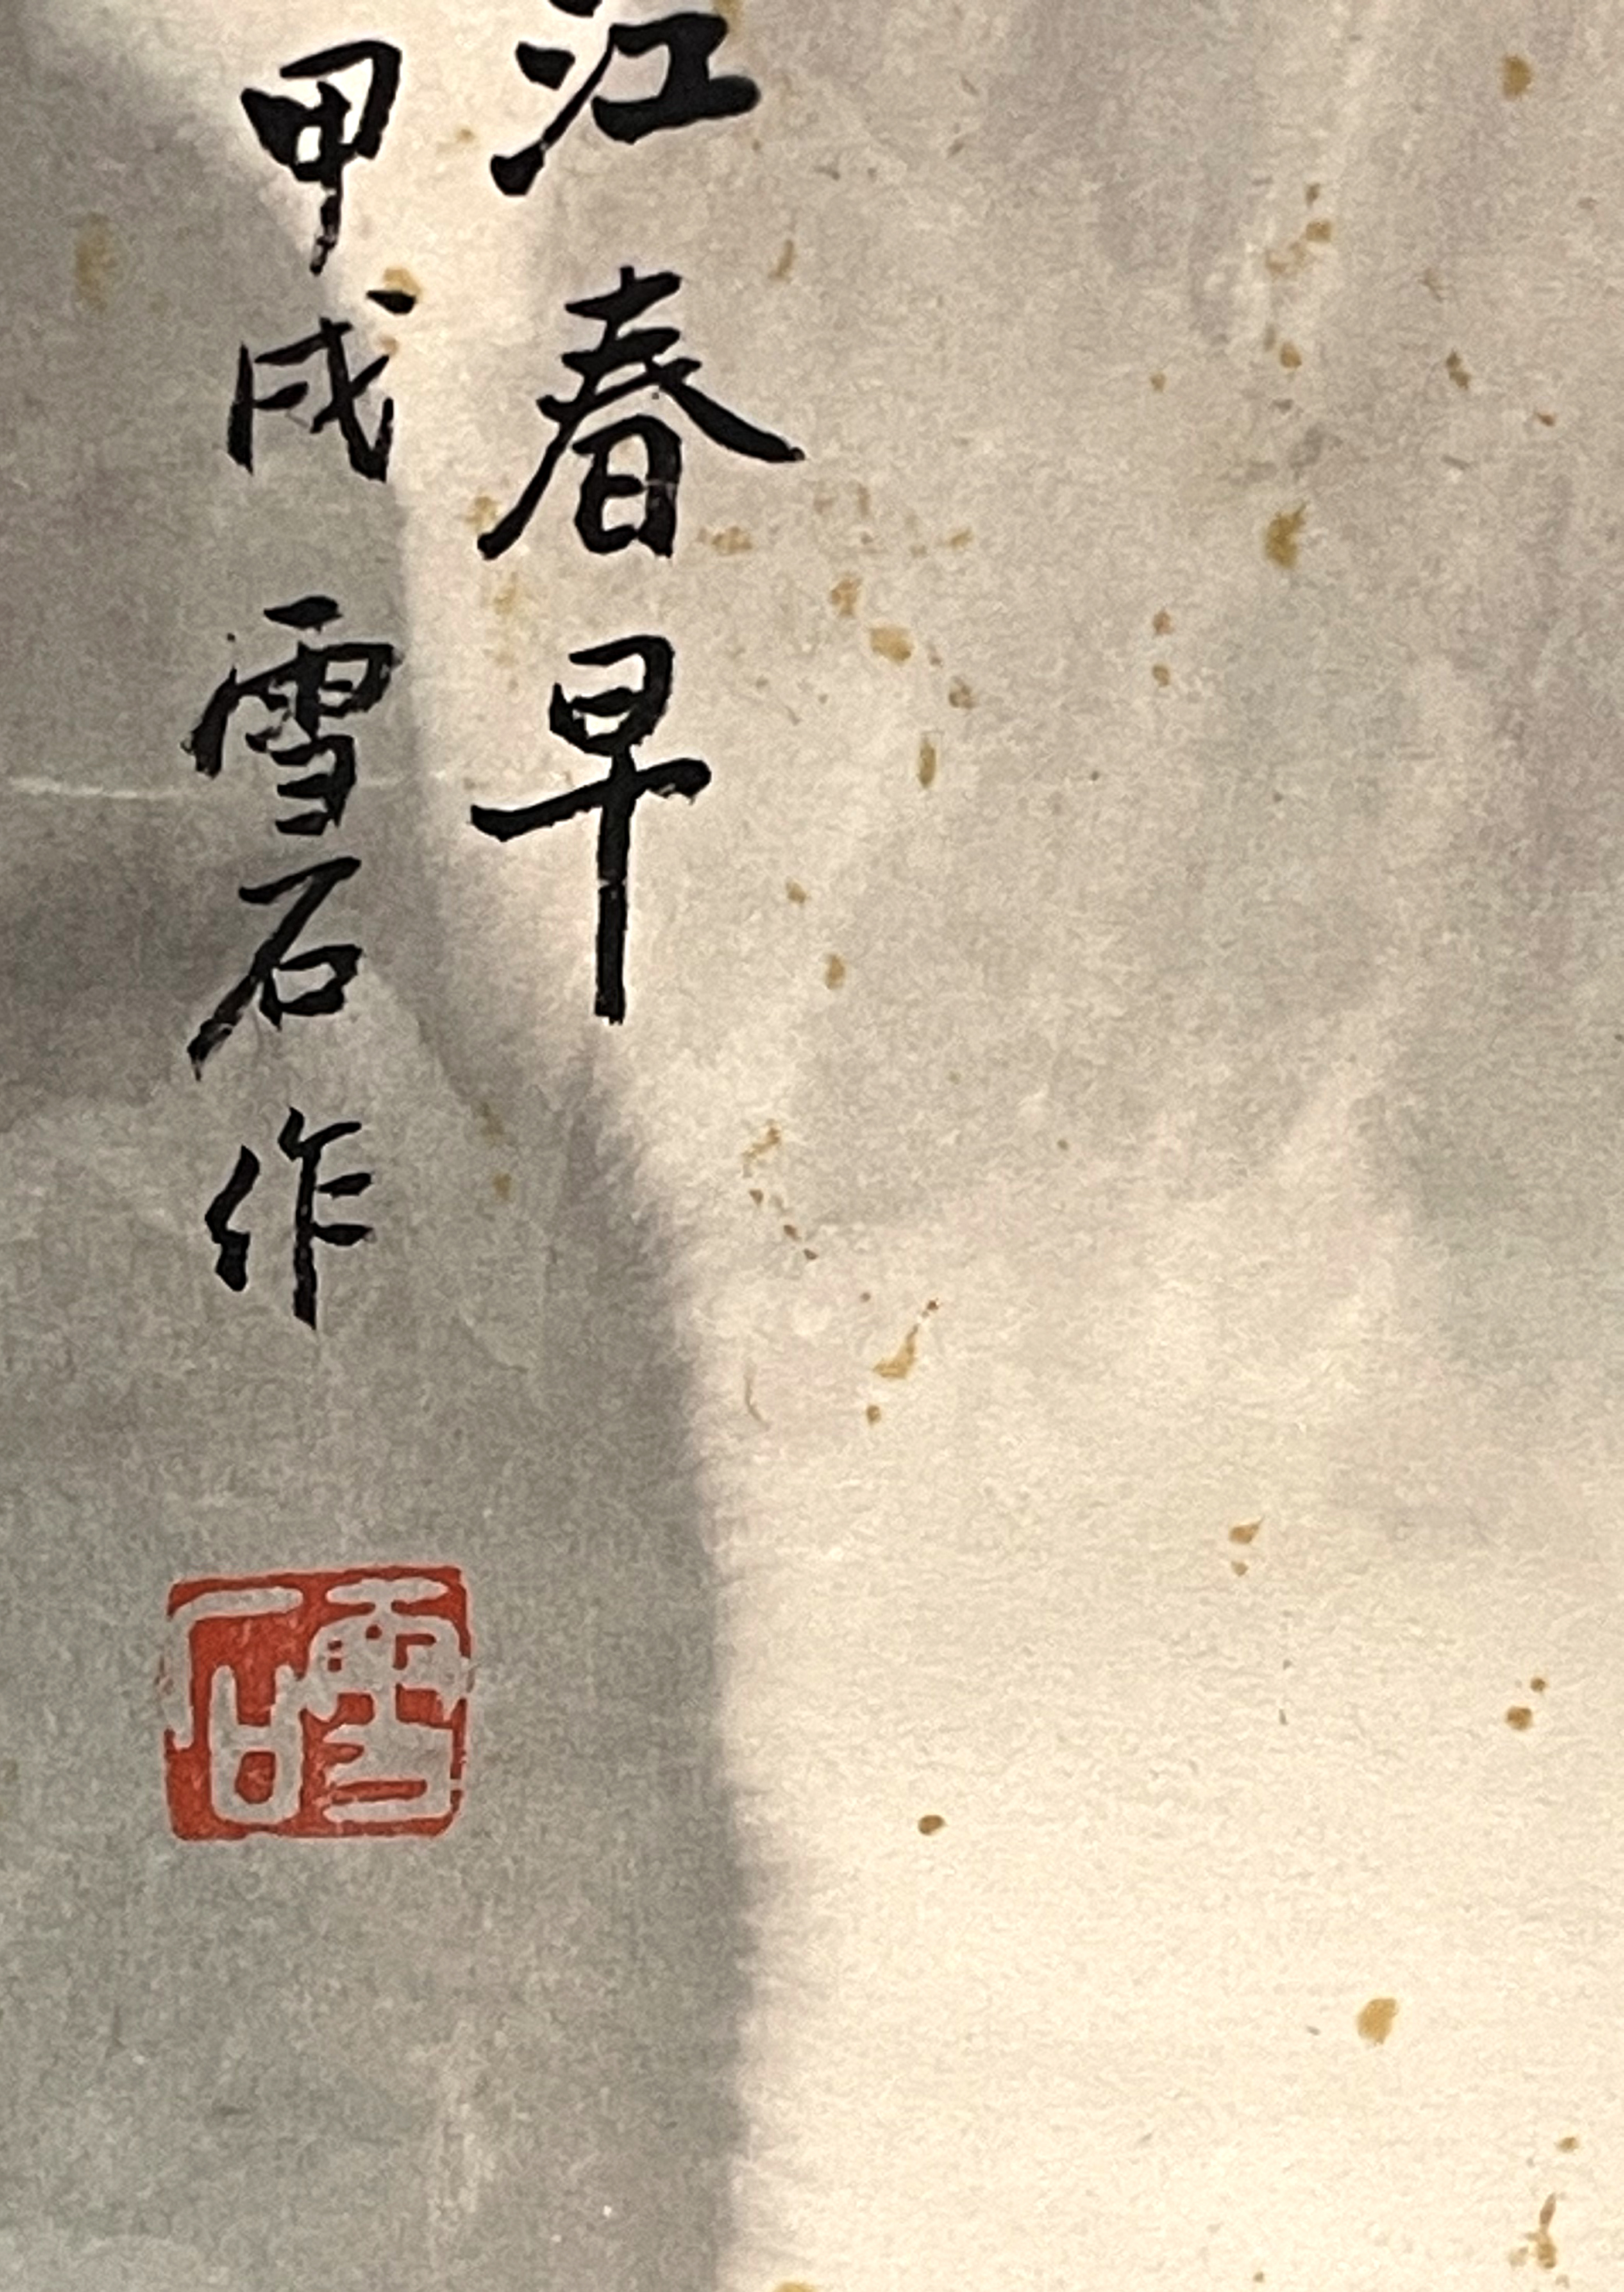 江春早
甲戌雪石作
雪石